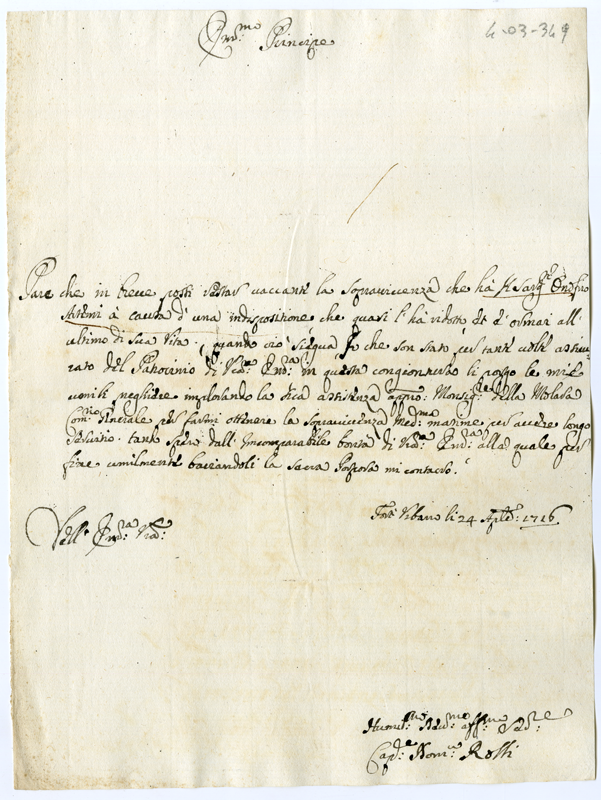 4-03-349
Em.mo Principe
Pare che in breve possi restar vaccante la Sopravivenza che hà il Sarg.te Onofrio
Artemi à causa d'una indispositione che quasi l'hà ridotto de d'ormai all'
ultimo di sua Vita; quando ciò siegua Io che son stato per tante volte assicu
rato del Patrocinio di V.ra Em.za in questa congiontura li porgo le mie
umili preghiere implorando la di ca assistenza appr.o Monsig.re della Molara
Com.rio Generale per farmi ottenere la Sopravivenza med.ma maxime per avere longo
servitio. tanto spero dall'Incomparabile bontà di V.ra Em.za alla quale per
fine, umilmente baciandoli la sacra Porpora mi confermo.
Forte Urbano li 24 Aple: 1716.
Dell'Em.za V.ra
Humil.mo Dev.mo Ser.re
Cap.e Dom.co Rossi